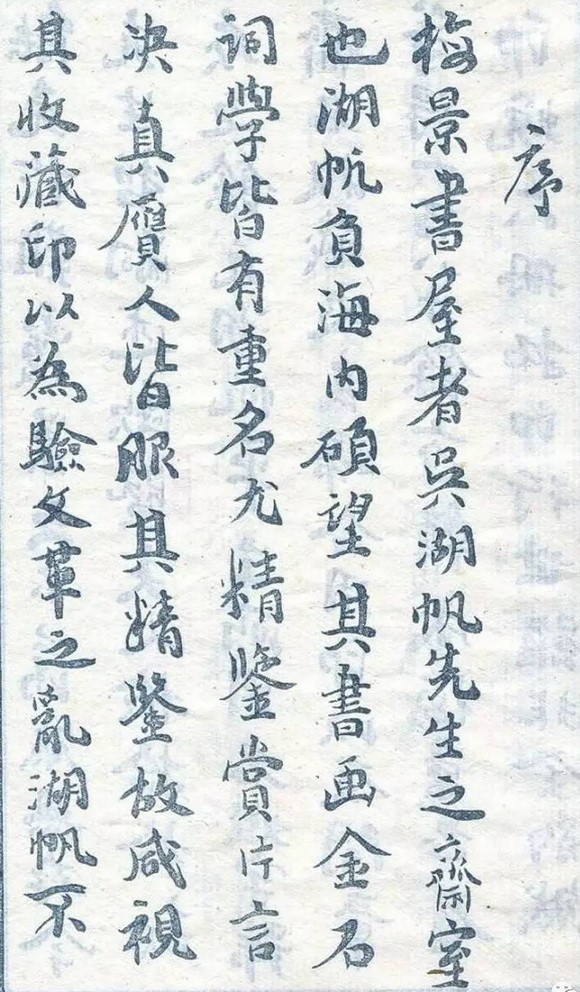 序
梅景書屋者吳湖帆先生之齋室
也湖帆負海内碩望其書画金石
詞學皆有重名尤精鑒賞片言
決真贋人皆服其精鑒故咸視
其收藏印以為驗文革之亂湖帆不